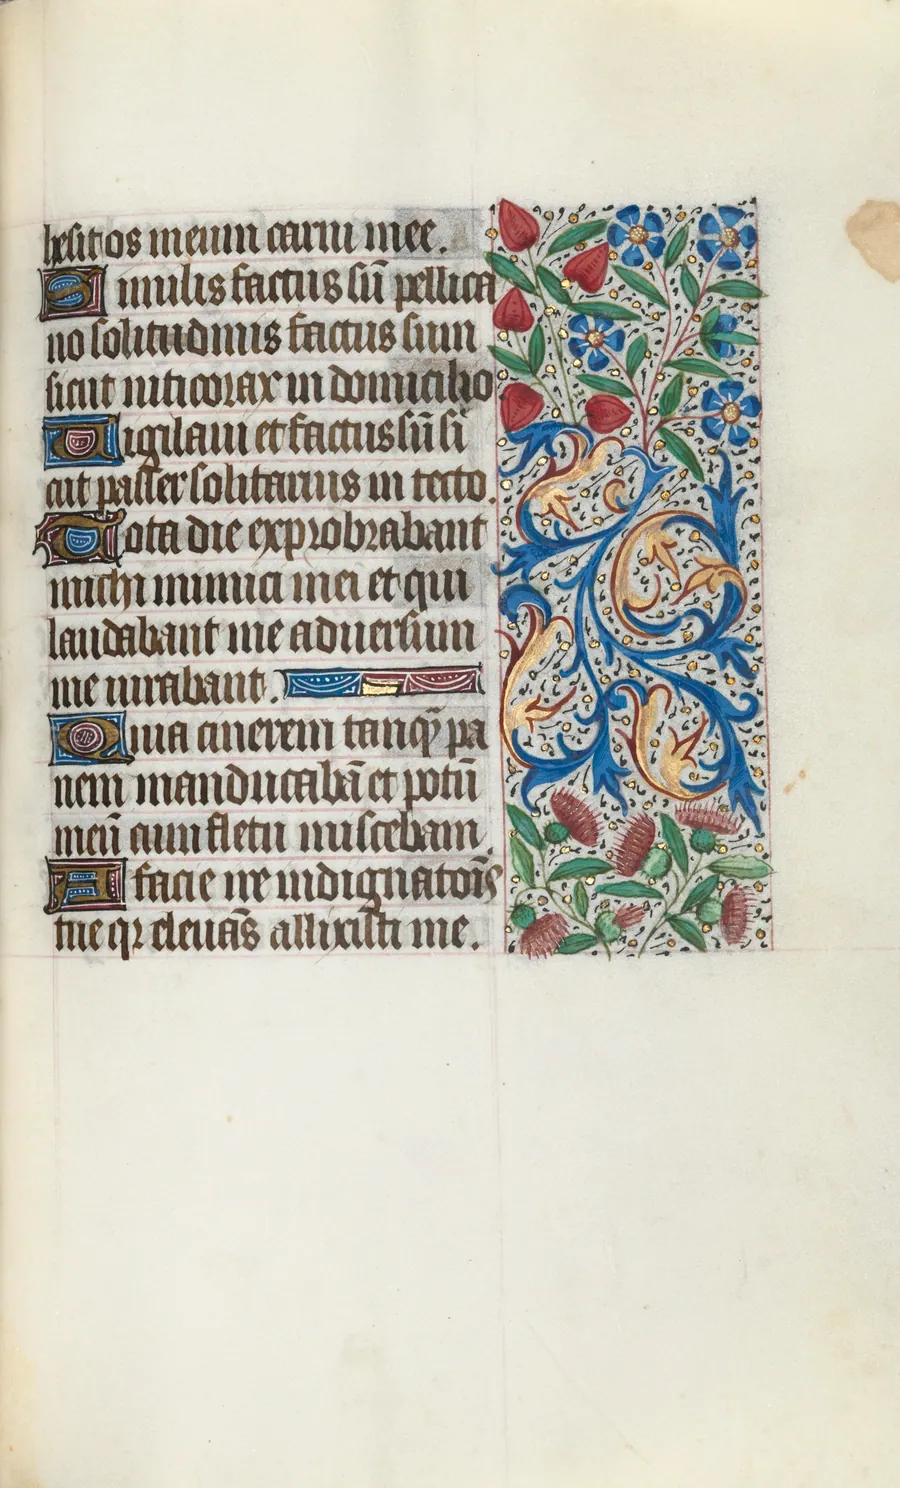 hesit os meum carni mee.
Similis factus sũ pellica
no solitudinis factus sum
sicut niticorax in domicilio
Vigilaui et factus sũ si
cut passer solitarius in tecto.
Tota die exprobrabant
michi inimici mei et qui
laudabant me aduersum
me iurabant.
Quia cinerem tanq̃ pa
nem manducabã et potũ
meũ cum fletu miscebam.
A facie ire indignatõis
tue qꝛ eleuãs allixisti me.